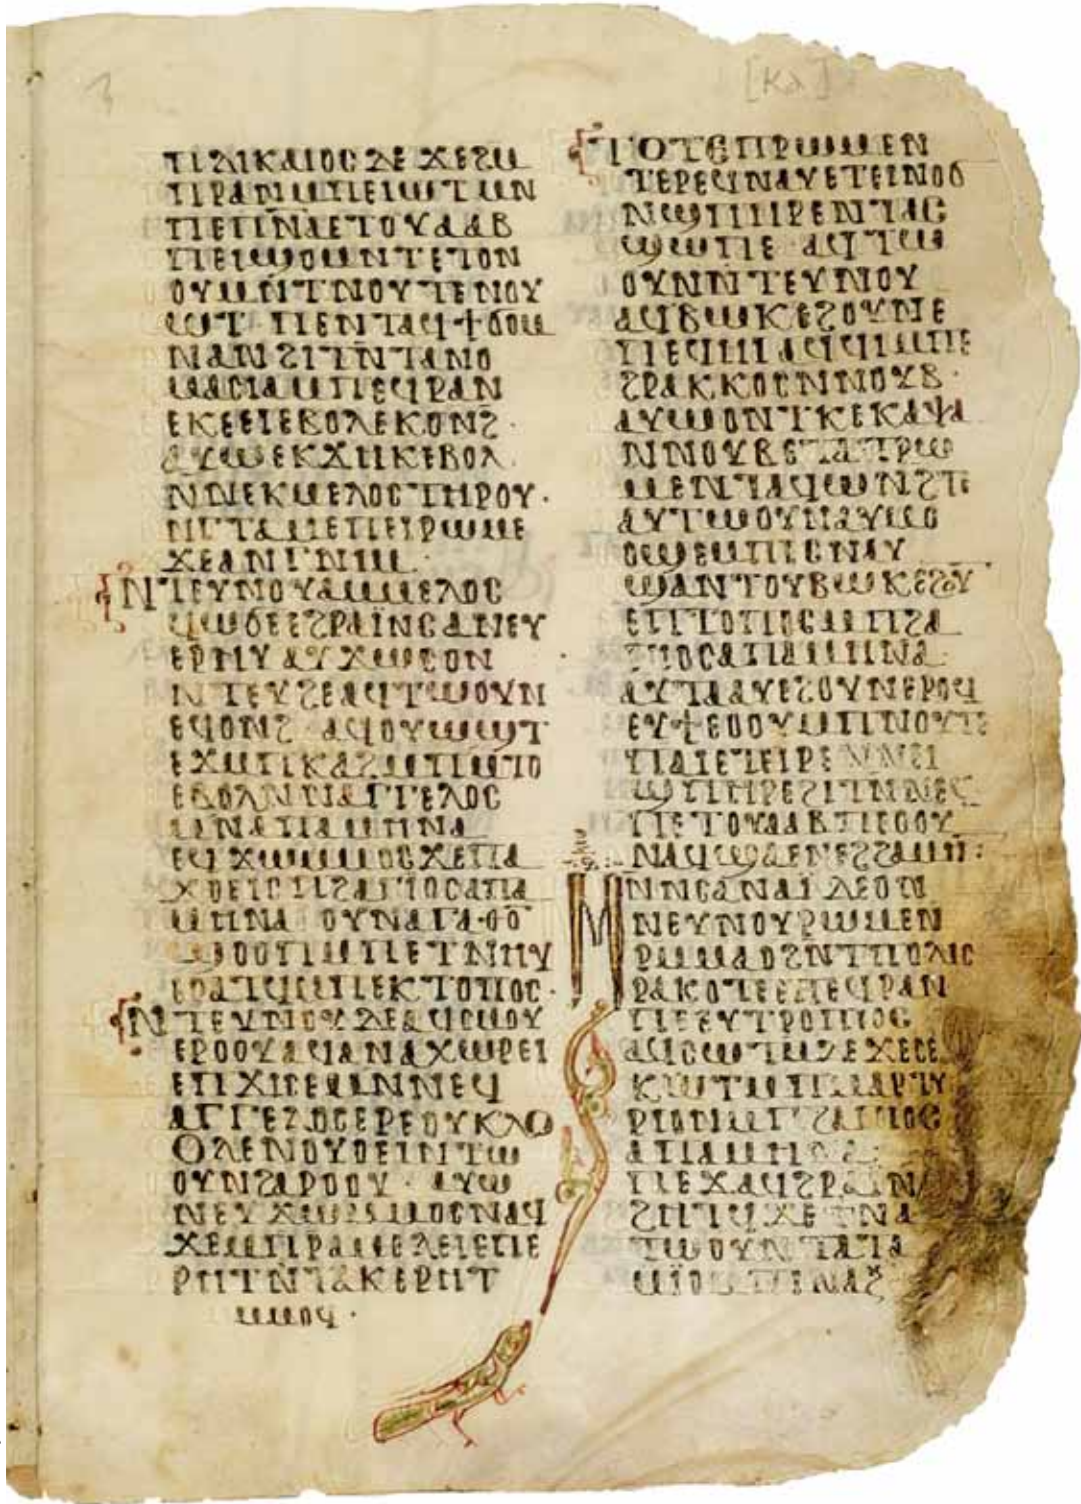 [ⲕⲁ]
ⲡⲇⲓⲕⲁⲓⲟⲥ ⲇⲉ ϫⲉϩⲙ
ⲡⲣⲁⲛⲙⲡⲉⲓⲱⲧⲙⲛ
ⲡⲉⲡⲛⲁⲉⲧⲟⲩⲁⲁⲃ
ⲡⲉⲓϣⲟⲙⲛⲧⲉⲧⲟⲛ
ⲟⲩⲙⲛⲧⲛⲟⲩⲧⲉⲛⲟⲩ
ⲱⲧ ⲡⲉⲛⲧⲁϥϯϭⲟⲙ
ⲛⲁⲛϩⲓⲧⲛⲧⲁⲛⲟ
ⲙⲁⲥⲓⲁⲙⲡⲉϥⲣⲁⲛ
ⲉⲕⲉⲉⲓⲉⲃⲟⲗⲉⲕⲟⲛϩ·
ⲁⲩⲱⲉⲕϫⲏⲕⲉⲃⲟⲗ
ⲛⲛⲉⲕⲙⲉⲗⲟⲥⲧⲏⲣⲟⲩ·
ⲛⲅⲧⲁⲙⲉⲡⲉⲓⲣⲱⲙⲉ
ϫⲉⲁⲛⲅⲛⲓⲙ·
ⲛⲧⲉⲩⲛⲟⲩⲁⲙⲙⲉⲗⲟⲥ
ϥⲱϭⲉⲉϩⲣⲁⲓ̈ⲛⲥⲁⲛⲉⲩ
ⲉⲣⲏⲩ ⲁⲩϫⲱⲥⲟⲛ
ⲛⲧⲉⲩϩⲉⲁϥⲧⲱⲟⲩⲛ
ⲉϥⲟⲛϩ ⲁϥⲟⲩⲱϣⲧ
ⲉϫⲙⲡⲕⲁϩⲙⲡⲙⲧⲟ
ⲉⲃⲟⲗⲛⲡⲁⲅⲅⲉⲗⲟⲥ
ⲙⲛⲁⲡⲁⲙⲏⲛⲁ
ⲉϥϫⲱⲙⲙⲟⲥϫⲉⲡⲁ
ϫⲟⲉⲓⲥⲡϩⲁⲅⲓⲟⲥⲁⲡⲁ
ⲙⲏⲛⲁ ⲟⲩⲛⲁⲅⲁⲑⲟ
ϣⲟⲟⲡⲙⲡⲉⲧⲛⲏⲩ
ⲉⲣⲁⲧϥⲙⲡⲉⲕⲧⲟⲡⲟⲥ·
ⲛⲧⲉⲩⲛⲟⲩⲇⲉⲁϥⲥⲙⲟⲩ
ⲉⲣⲟⲟⲩⲁϥⲁⲛⲁⲭⲱⲣⲉⲓ
ⲉⲡϫⲓⲥⲉⲙⲛⲛⲉϥ
ⲁⲅⲅⲉⲗⲟⲥⲉⲣⲉⲟⲩⲕⲗⲟ
ⲟⲗⲉⲛⲟⲩⲟⲉⲓⲛⲧⲱ
ⲟⲩⲛϩⲁⲣⲟⲟⲩ· ⲁⲩⲱ
ⲛⲉⲩϫⲱⲙⲙⲟⲥⲛⲁϥ
ϫⲉⲙⲡⲣⲁⲙⲉⲗⲉⲓⲉⲡⲉ
ⲣⲏⲧⲛⲧⲁⲕⲉⲣⲏⲧ
ⲙⲙⲟϥ·
ⲧⲟⲧⲉⲡⲣⲱⲙⲉⲛ
ⲧⲉⲣⲉϥⲛⲁⲩⲉⲧⲉⲓⲛⲟϭ
ⲛϣⲡⲏⲣⲉⲛⲧⲁⲥ
ϣⲱⲡⲉ ⲁϥⲧⲱ
ⲟⲩⲛⲛⲧⲉⲩⲛⲟⲩ
ⲁϥⲃⲱⲕⲉϩⲟⲩⲛⲉ
ⲡⲉϥⲏⲓ ⲁϥϥⲓⲙⲡⲉ
ϩⲣⲁⲕⲕⲟⲥⲛⲛⲟⲩⲃ·
ⲁⲩⲱⲟⲛⲧⲕⲉⲕⲁⲯⲁ
ⲛⲛⲟⲩⲃⲉⲧⲁⲡⲣⲱ
ⲙⲉⲛⲧⲁϥⲱⲛϩⲧⲉ
ⲁⲩⲧⲱⲟⲩⲛⲁⲩⲙⲟ
ⲟϣⲉⲙⲡⲉⲥⲛⲁⲩ
ϣⲁⲛⲧⲟⲩⲃⲱⲕⲉϩⲟⲩ
ⲉⲡⲧⲟⲡⲟⲥⲙⲡϩⲁ
ⲅⲓⲟⲥⲁⲡⲁⲙⲏⲛⲁ·
ⲁⲩⲧⲁⲁⲩⲉϩⲟⲩⲛⲉⲣⲟϥ
ⲉⲩϯⲉⲟⲟⲩⲙⲡⲛⲟⲩⲧⲉ
ⲡⲁⲓⲉⲧⲉⲓⲣⲉⲛⲛⲉⲓ
ϣⲡⲏⲣⲉϩⲓⲧⲛⲛⲉϥ
ⲡⲉⲧⲟⲩⲁⲁⲃⲡⲉⲟⲟⲩ
ⲛⲁϥϣⲁⲉⲛⲉϩϩⲁⲙⲏⲛ:
ⲙⲛⲛⲥⲁⲛⲁⲓ̈ ⲇⲉⲟⲛ
ⲛⲉⲩⲛⲟⲩⲣⲱⲙⲉⲛ
ⲣⲙⲙⲁⲟϩⲛⲧⲡⲟⲗⲓⲥ
ⲣⲁⲕⲟⲧⲉⲉⲡⲉϥⲣⲁⲛ
ⲡⲉⲉⲩⲧⲣⲟⲡⲓⲟⲥ
ⲁϥⲥⲱⲧⲙⲇⲉϫⲉⲥⲉ
ⲕⲱⲧⲙⲡⲙⲁⲣⲧⲩ
ⲣⲓⲟⲛⲙⲡϩⲁⲅⲓⲟⲥ
ⲁⲡⲁⲙⲏⲛⲁ·
ⲡⲉϫⲁϥϩⲣⲁⲓ̈ⲛ
ϩⲏⲧϥ ϫⲉϯⲛⲁ
ⲧⲱⲟⲩⲛⲧⲁⲧⲁ